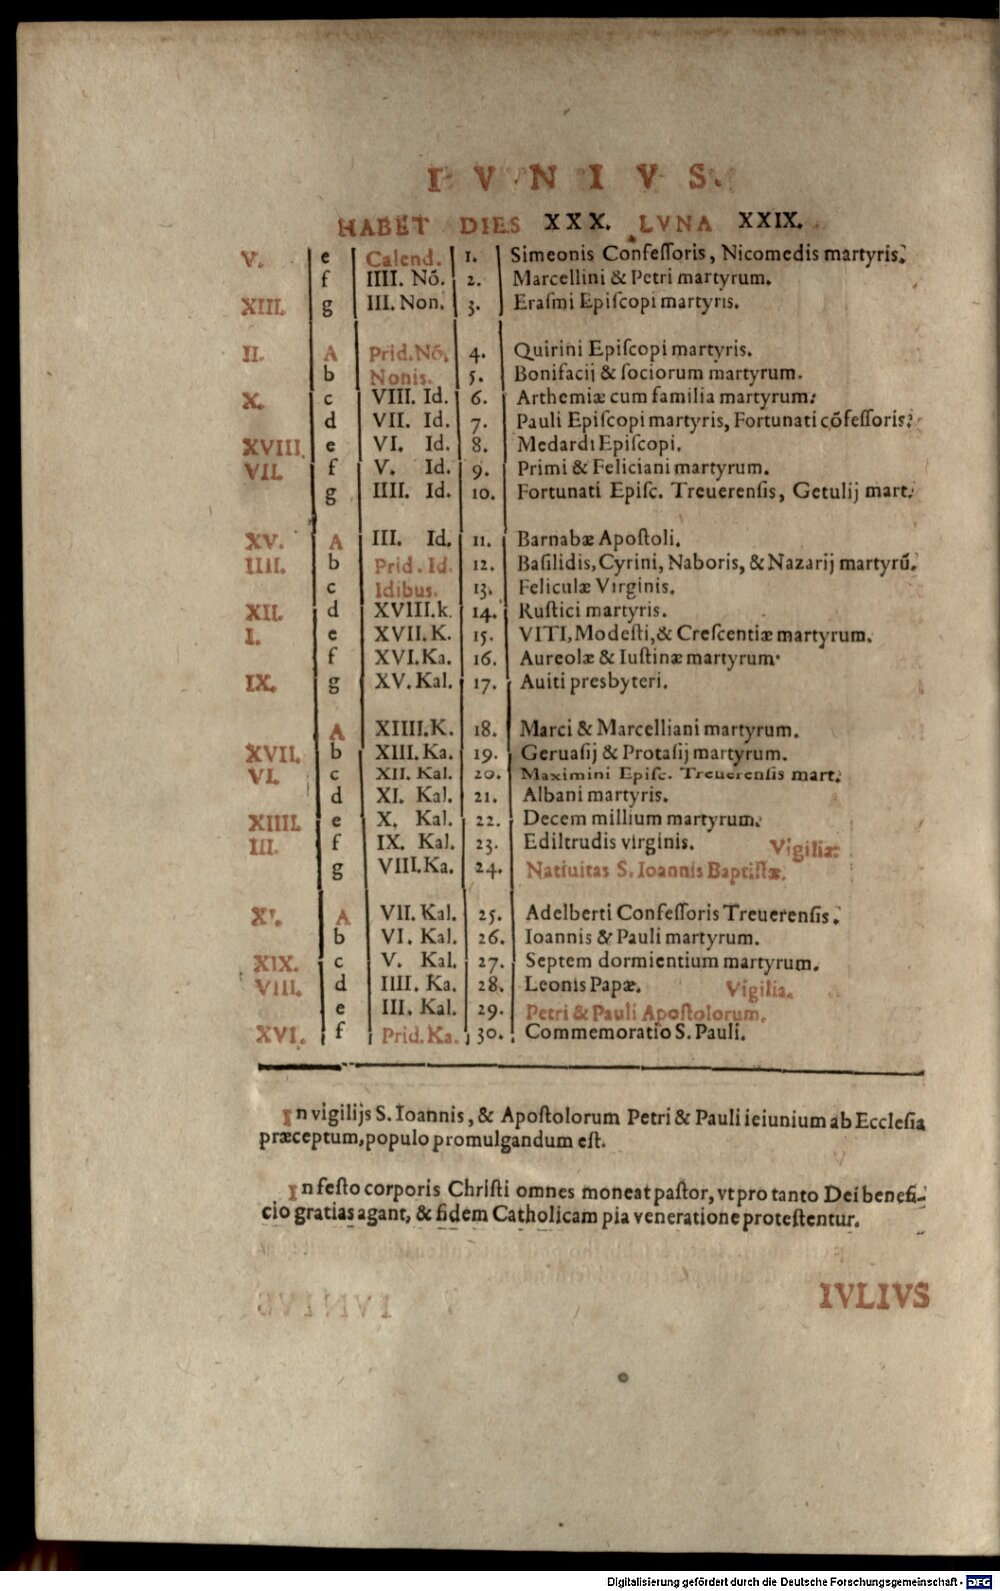 IVNIVS.
HABET DIES XXX. LVNA XXIX.
V. e Calend. 1. Simeonis Confeſſoris, Nicomedis martyris.
f IIII. Nō. 2. Marcellini & Petri martyrum.
XIII. g III. Non. 3. Eraſmi Epiſcopi martyris.
II. A Prid. Nō. 4. Quirini Epiſcopi martyris.
b Nonis. 5. Bonifacij & ſociorum martyrum.
X. c VIII. Id. 6. Arthemiæ cum familia martyrum.
d VII. Id. 7. Pauli Epiſcopi martyris, Fortunati cōfeſſoris.
XVIII. e VI. Id. 8. Medardi Epiſcopi.
VII. f V. Id. 9. Primi & Feliciani martyrum.
g IIII. Id. 10. Fortunati Epiſc. Treuerenſis, Getulij mart.
XV. A III. Id. 11. Barnabæ Apoſtoli.
IIII. b Prid. Id. 12. Baſilidis, Cyrini, Naboris, & Nazarij martyrū.
c Idibus. 13. Feliculæ Virginis.
XII. d XVIII. k. 14. Ruſtici martyris.
I. e XVII. K. 15. VITI, Modeſti, & Creſcentiæ martyrum.
f XVI. Ka. 16. Aureolæ & Iuſtinæ martyrum.
IX. g XV. Kal. 17. Auiti presbyteri.
A XIIII. K. 18. Marci & Marcelliani martyrum.
XVII. b XIII. Ka. 19. Geruaſij & Protaſij martyrum.
VI. c XII. Kal. 20. Maximini Epiſc. Treuerenſis mart.
d XI. Kal. 21. Albani martyris.
XIIII. e X. Kal. 22. Decem millium martyrum.
III. f IX. Kal. 23. Ediltrudis virginis. Vigiliæ
g VIII. Ka. 24. Natiuitas S. Ioannis Baptiſtæ.
XI. A VII. Kal. 25. Adelberti Confeſſoris Treuerenſis.
b VI. Kal. 26. Ioannis & Pauli martyrum.
XIX. c V. Kal. 27. Septem dormientium martyrum.
VIII. d IIII. Ka. 28. Leonis Papæ. Vigilia.
e III. Kal. 29. Petri & Pauli Apoſtolorum.
XVI. f Prid. Ka. 30. Commemoratio S. Pauli.
In vigilijs S. Ioannis, & Apoſtolorum Petri & Pauli ieiunium ab Eccleſia
præceptum, populo promulgandum eſt.
In feſto corporis Chriſti omnes moneat paſtor, vt pro tanto Dei benefi-
cio gratias agant, & fidem Catholicam pia veneratione proteſtentur.
IVLIVS
Digitalisierung gefördert durch die Deutsche Forschungsgemeinschaft - DFG